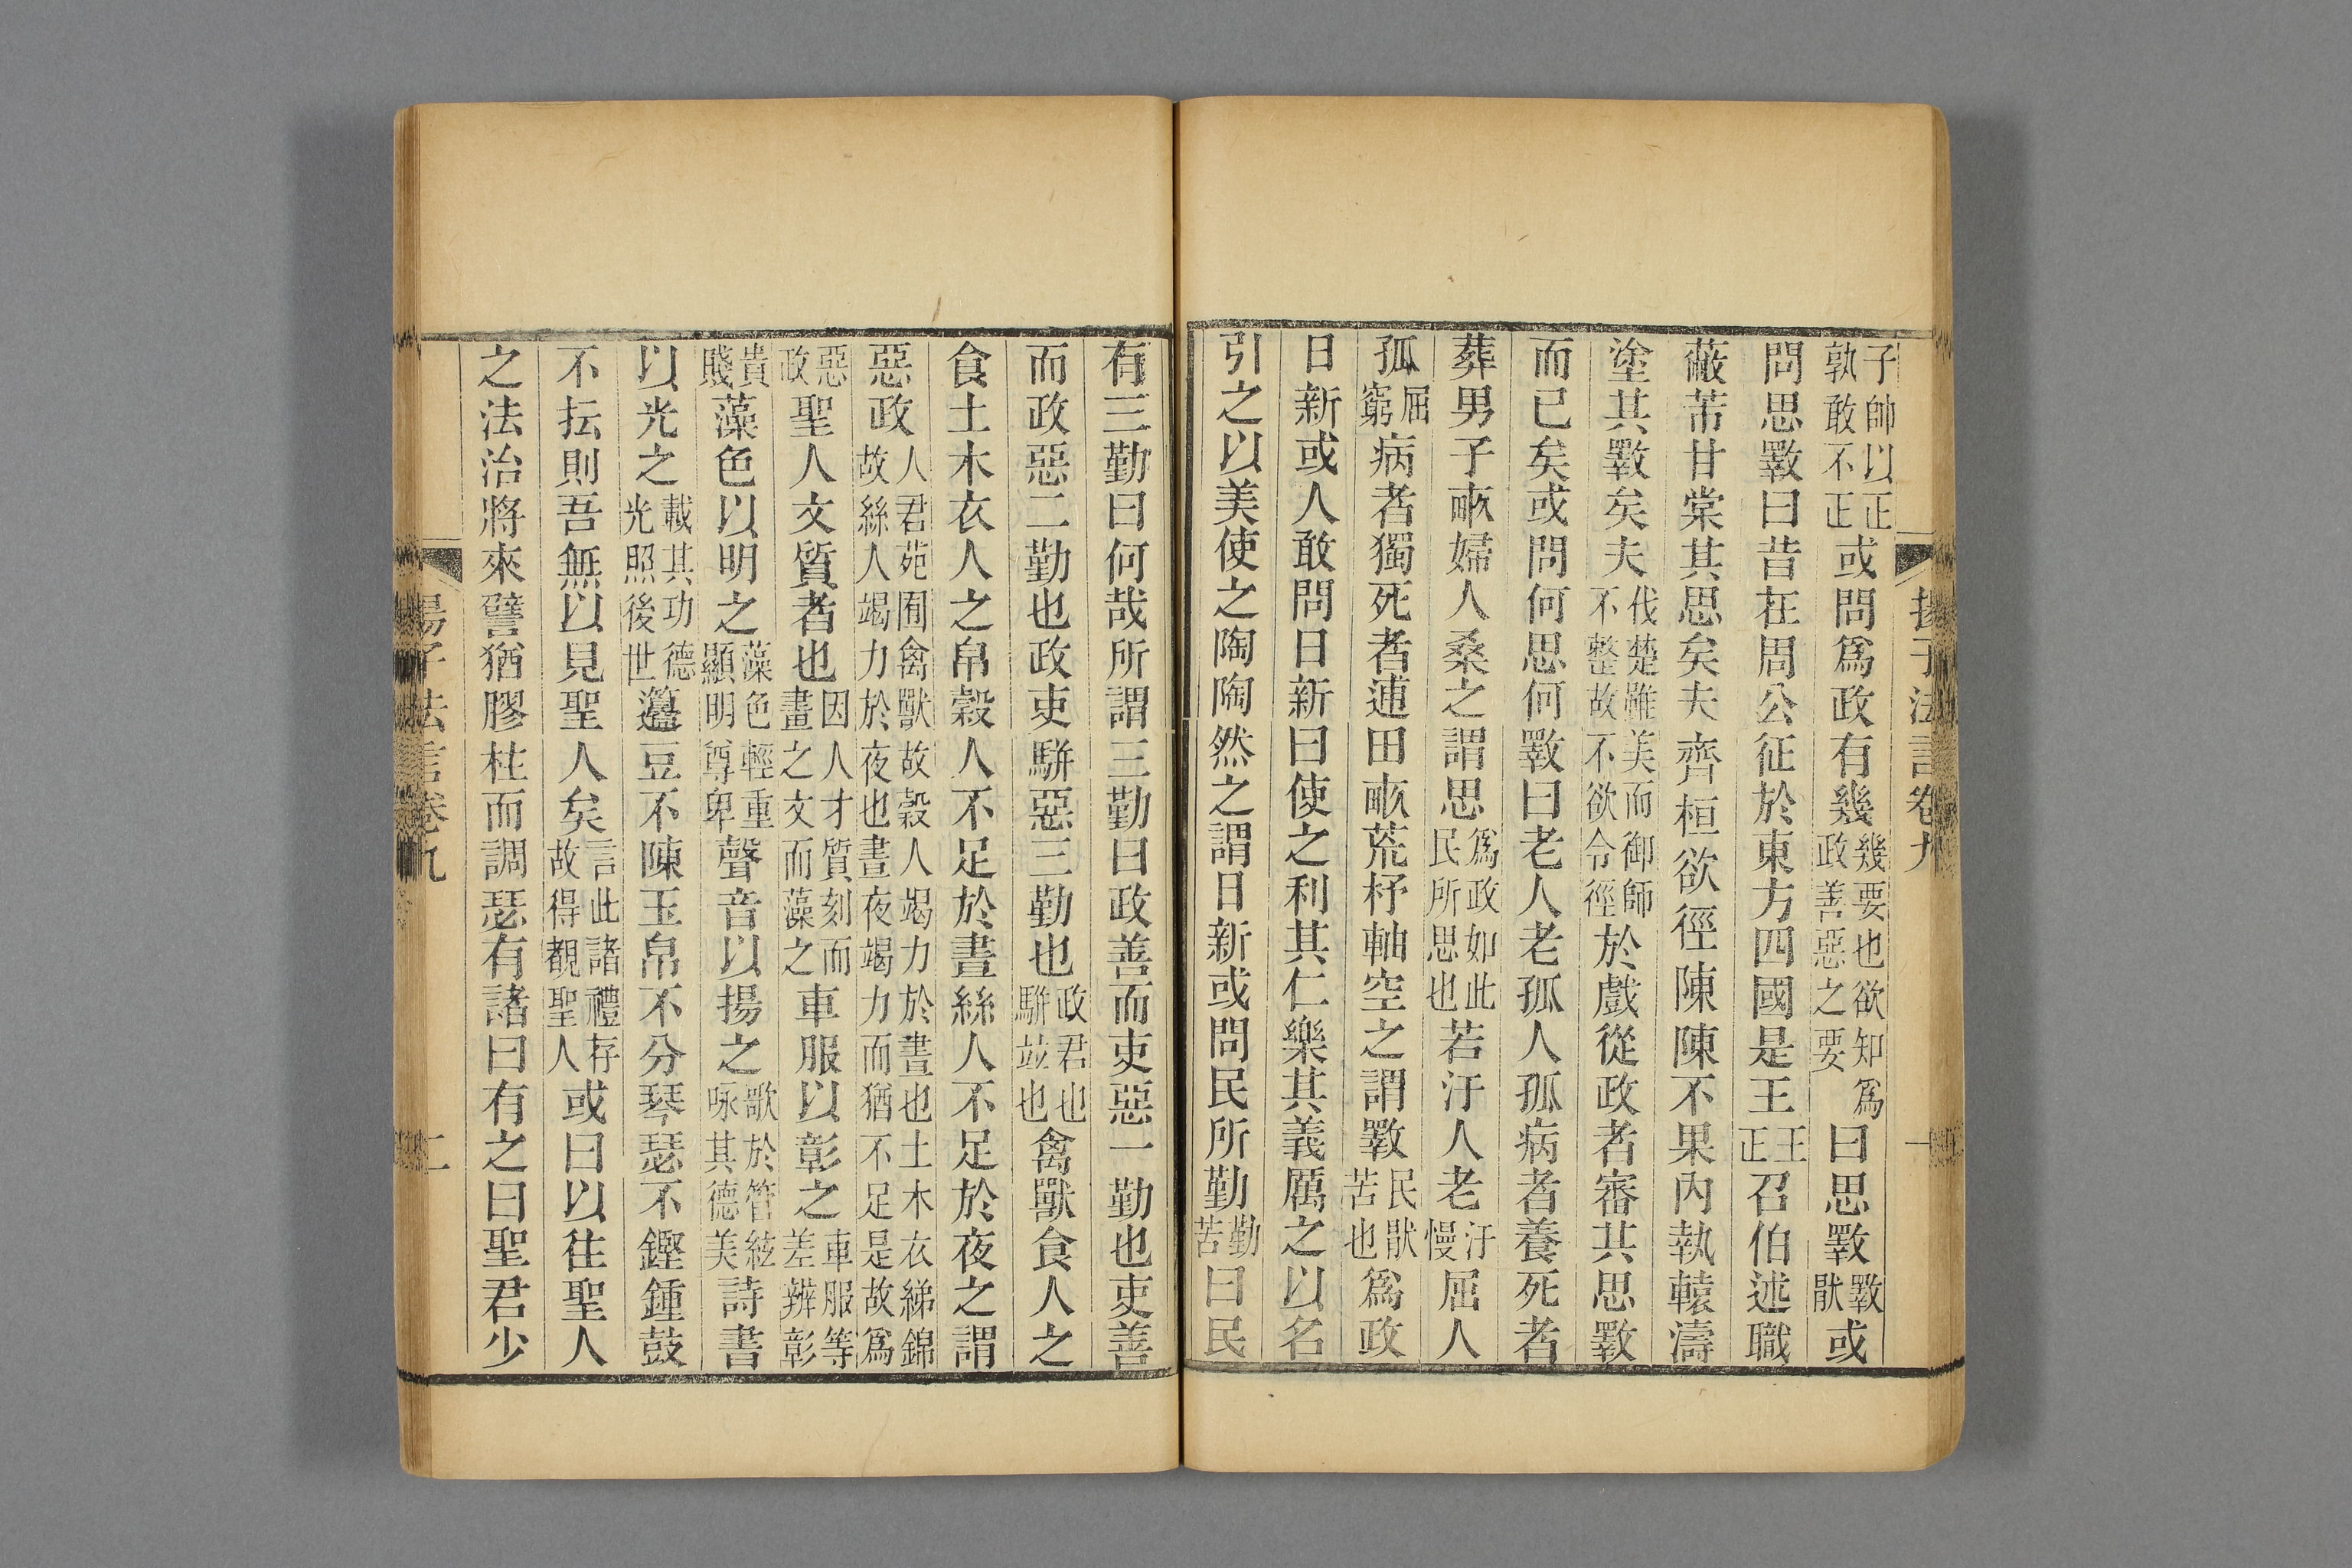 揚子法言卷九　一
子帥以正孰敢不正或問爲政有幾幾要也欲知爲政善惡之要曰思斁斁猒或
問思斁曰昔在周公征於東方四國是王王正召伯述職
蔽芾甘棠其思矣夫齊桓欲徑陳陳不果內執轅濤
塗其斁矣夫伐楚雖美而御師不整故不欲令徑於戲從政者審其思斁
而已矣或問何思何斁曰老人老孤人孤病者養死者
葬男子畝婦人桑之謂思爲政如此民所思也若汙人老汙慢屈人
孤屈窮病者獨死者逋田畝荒杼軸空之謂斁民猒苦也爲政
日新或人敢問日新曰使之利其仁樂其義厲之以名
引之以美使之陶陶然之謂日新或問民所勤勤苦曰民
有三勤曰何哉所謂三勤曰政善而吏惡一勤也吏善
而政惡二勤也政吏駢惡三勤也政君也駢竝也禽獸食人之
食土木衣人之帛穀人不足於晝絲人不足於夜之謂
惡政人君苑囿禽獸故穀人竭力於晝也土木衣綈錦故絲人竭力於夜也晝夜竭力而猶不足是故爲
惡政聖人文質者也因人才質刻而畫之文而藻之車服以彰之車服等差辨彰
貴賤藻色以明之藻色輕重顯明尊卑聲音以揚之歌於管絃咏其德美詩書
以光之載其功德光照後世籩豆不陳玉帛不分琴瑟不鏗鍾鼓
不抎則吾無以見聖人矣言此諸禮存故得覩聖人或曰以往聖人
之法治將來譬猶膠柱而調瑟有諸曰有之曰聖君少
揚子法言卷九　二